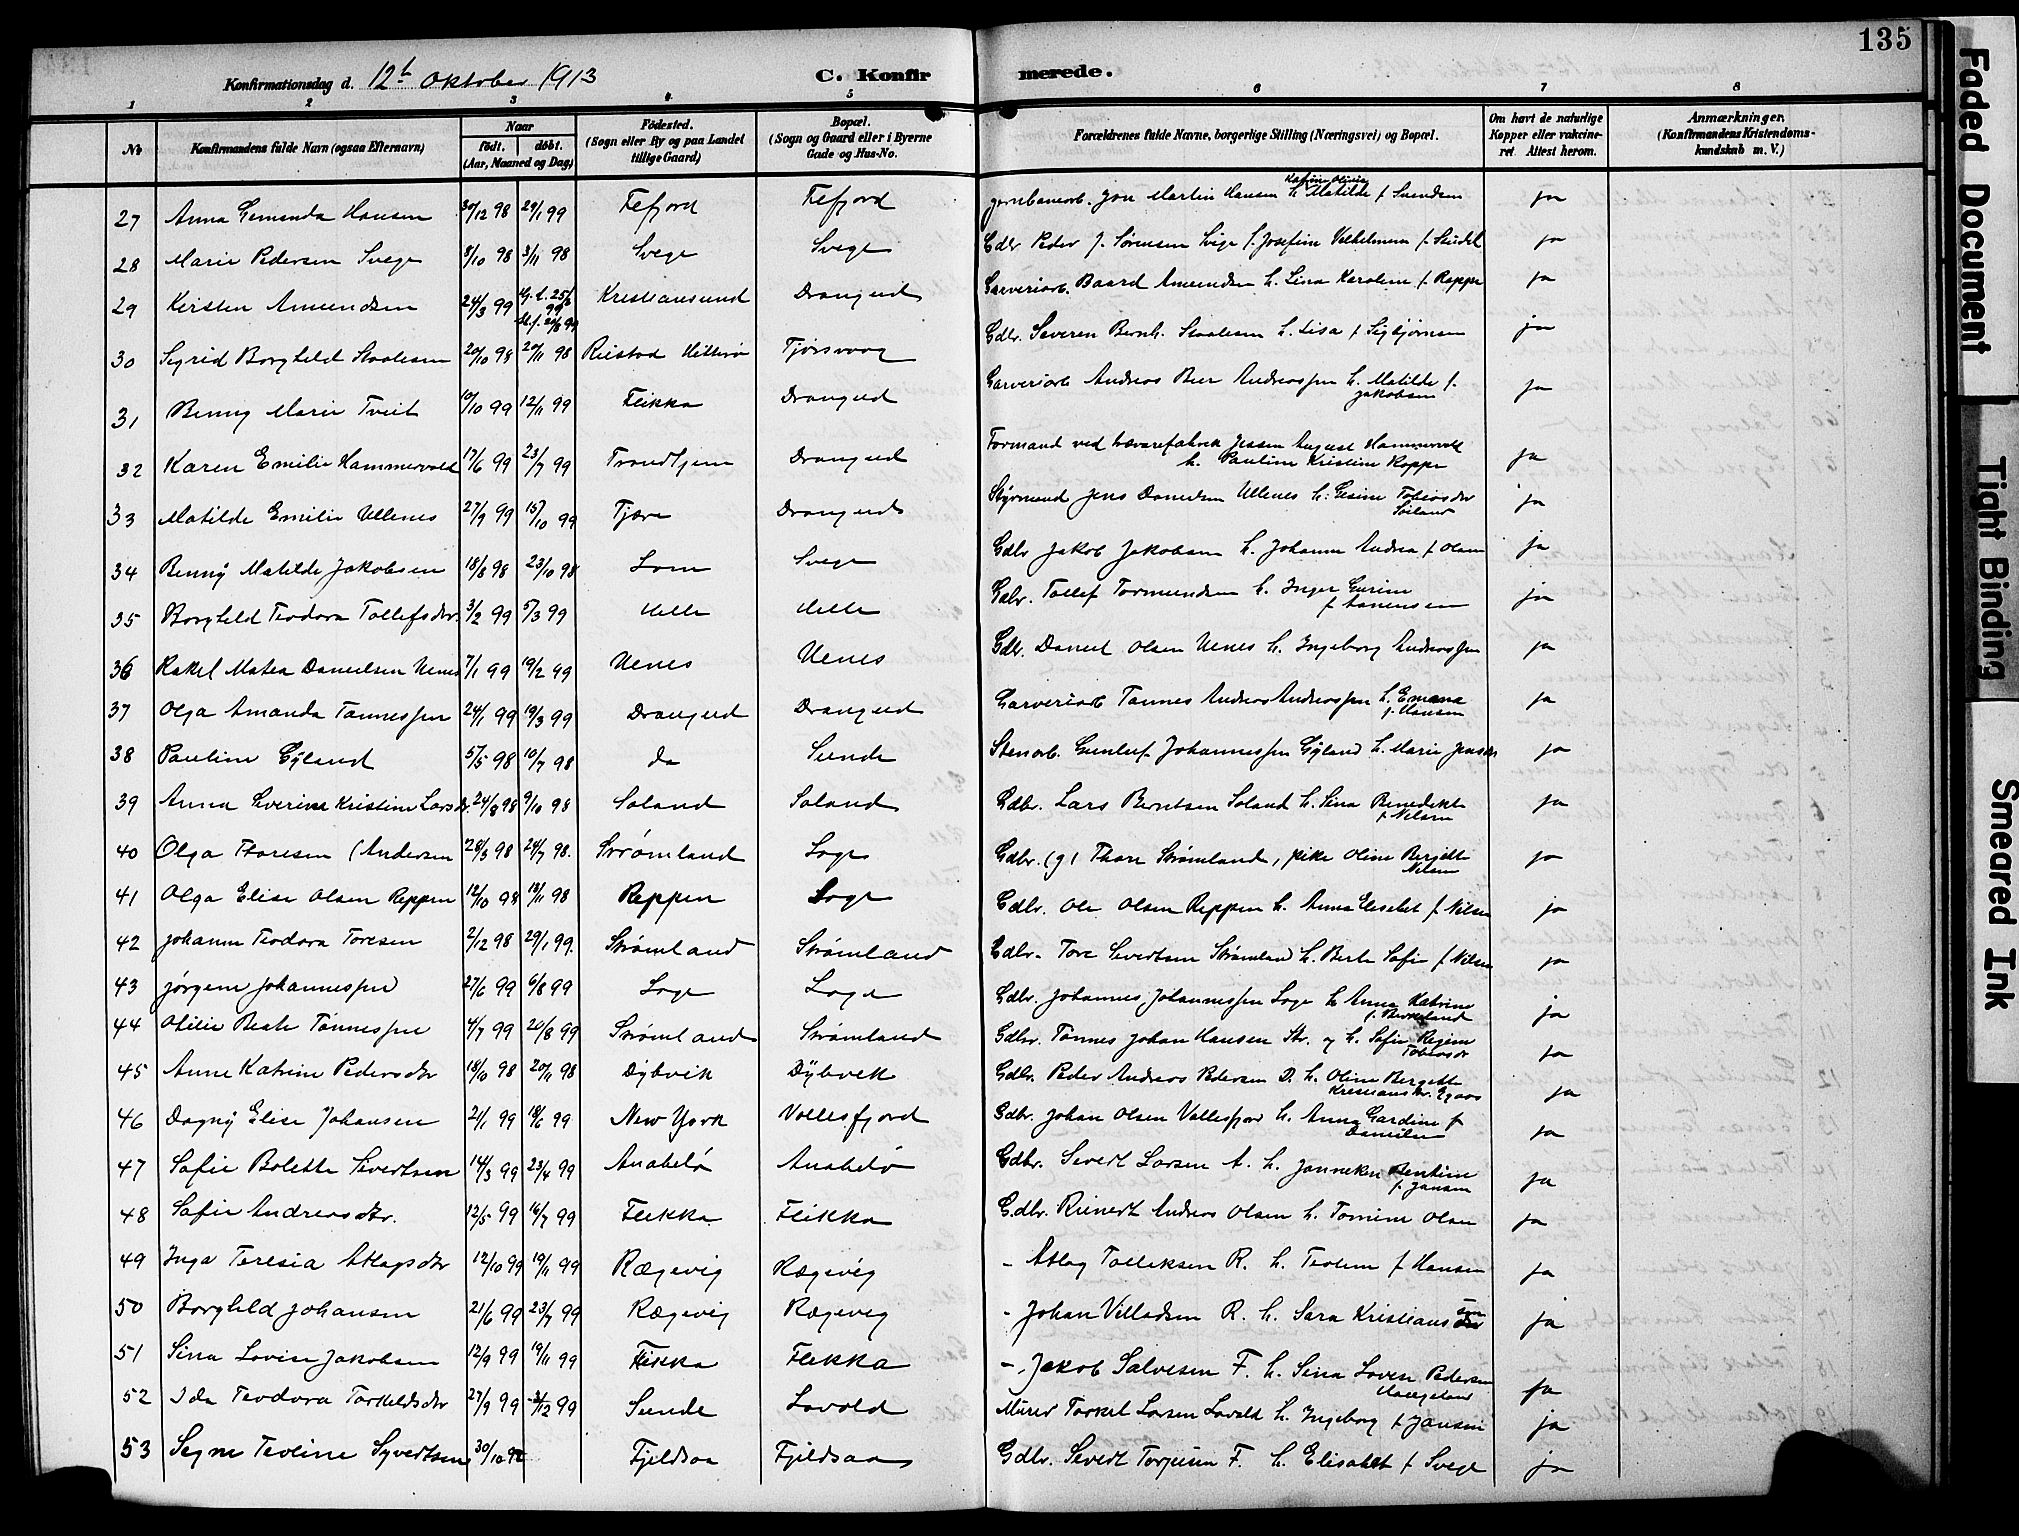 135
Konfirmationsdag d. 12t Oktober 1913 C. Konfirmerede.
1 2 3 4 5 6 7 8
№ Konfirmandens fulde Navn (ogsaa Efternavn) Naar født. døbt. (Aar, Maaned og Dag) Fødested. (Sogn eller By og paa Landet tillige Gaard) Bopæl. (Sogn og Gaard eller i Byerne Gade og Hus-No. Forældrenes fulde Navne, borgerlige Stilling (Næringsvei) og Bopæl. Om havt de naturlige Kopper eller vakcineret. Attest herom. Anmærkninger. (Konfirmandens Kristendomskundskab m. V.)
27 Anna Gemunda Hansen 30/12 98 29/1 99 Fefjord Fefjord Jernbanearb. Jon Martin Hansen h. Katrine Olivia Matilde f. Svendsen ja
28 Marie Pedersen Svege 8/10 98 3/11 98 Svege Svege Gdbr. Peder J. Sørensen Svige h. Josefine Vilhelmine f. Seidel ja
29 Kirsten Amundsen 24/3 99 Kristiansund Drangeid Garveriarb. Baard Amundsen h. Lina Karoline f. Roppe ja
30 Sigrid Borghild Staalesen 20/10 98 20/11 98 Rustad Hitterø Tjørsvaag Gdbr. Severin Bernh. Staalesen h. Lisa f. Sigbjørnsen ja
31 Benny Marie Tveit 10/10 99 12/11 99 Flikka Drangeid Garveriarb Andreas Beer Andreassen h. Matilde f. Jakobsen ja
32 Karen Emilie Hammervold 17/6 99 23/7 99 Trondhjem Drangeid Formand ved Lærvarefabrik Jessen August Hammervold h. Pauline Kristine Roppe ja
33 Matilde Emilie Ullenes 27/9 99 15/10 99 Tjære Drangeid Styrmand Jens Danielsen Ullenes h. Gesine Tobiasdtr Søiland ja
34 Benny Matilde Jakobsen 18/8 98 23/10 98 Lom Svege Gdbr Jakob Jakobsen h. Johanne Andrea f. Olsen ja
35 Borghild Teodora Tollefsdtr. 3/2 99 5/3 99 Helle Helle Gdbr. Tollef Tormundsen h. Inger Gurine f. Aanensen ja
36 Rakel Matea Danielsen Uenes 7/1 99 19/2 99 Uenes Uenes Gdbr. Daniel Olsen Uenes h. Ingeborg Andreassen ja
37 Olga Amanda Tønnessen 24/1 99 19/3 99 Drangeid Drangeid Garveriarb Tønnes Andreas Andreassen h. Emma f. Hansen ja
38 Pauline Gyland 5/5 98 10/7 98 do Sunde Stenarb. Gunleif Johannessen Gyland h. Marie Jensdtr ja
39 Anna Sverine Kristine Larsdtr. 24/8 98 9/10 98 Soland Soland Gdbr. Lars Berntsen Soland h. Sina Benedikte f. Nilsen ja
40 Olga Toresen (Andersen 28/5 98 24/7 98. Strømland Loge Gdbr. (g) Thore Strømland, pike Oline Bergitte Nilsen ja
41 Olga Elise Olsen Reppen 12/10 98 13/11 98 Reppen Loge Gdbr. Ole Olsen Reppen h. Anna Elisabet f. Nilsen ja
42 Johanne Teodora Toresen 2/12 98 29/1 99. Strømland Strømland Gdbr. Tore Sivertsen Strømland h. Berte Sofie f. Nilsen ja
43 Jørgine Johannessen 27/6 99 6/8 99 Loge Loge Gdbr. Johannes Johannessen Loge h Anna Katrine f. Birkeland ja
44 Otilie Beate Tønnessen 4/7 99 20/8 99 Strømland Strømland Gdbr. Tønnes Johan Hansen Str. og h. Sofie Regine Tobiasdtr ja
45 Anne Katrine Pedersdtr 18/10 98 20/11 98 Dybvik Dybvik Gdbr. Peder Andreas Pedersen D. h. Oline Bergitte Kristiansdtr. Egaas ja
46 Dagny Elise Johansen 2/1 99 18/6 99 New York Vollesfjord Gdbr. Johan Olsen Vollesfjord h. Anna Gardine f. Danielsen ja
47 Sofie Bolette Sivertsen 14/3 99 23/4 99 Anabelø Anabelø Gdbr. Sivert Larsen A. h. Janneken Bentine f. Jansen ja
48 Sofie Andreasdtr. 12/5 99 16/7 99 Flikka Flikka Gdbr. Reinert Andreas Olsen h. Tomine Olsen ja
49 Inga Teresia Atlagsdtr 12/10 99 19/11 99 Rægevig Rægevig - Atlag Tolleksen R. h. Teoline f. Hansen ja
50 Borghild Johansen 21/6 99 23/7 99 Rægevig Rægevig - Johan Villadsen R. h. Sara Kristiansen ja
51 Sina Lovise Jakobsen 12/9 99 19/11 99 Flikka Flikka - Jakob Salvesen F. h. Sina Lovise Pedersen Haugeland ja
52 Ida Teodora Torkildsdtr 27/9 99 3/12 99 Sunde Lovold Murer Torkel Larsen Lovold h. Ingeborg f. Jansen ja
53 Signe Teoline Syvertsen 30/10 98 Fjeldsaa Fjeldsaa Gdbr. Sivert Torjusen F. h. Elisabet f. Svege ja
Faded Document
Tight Binding
Smeared Ink